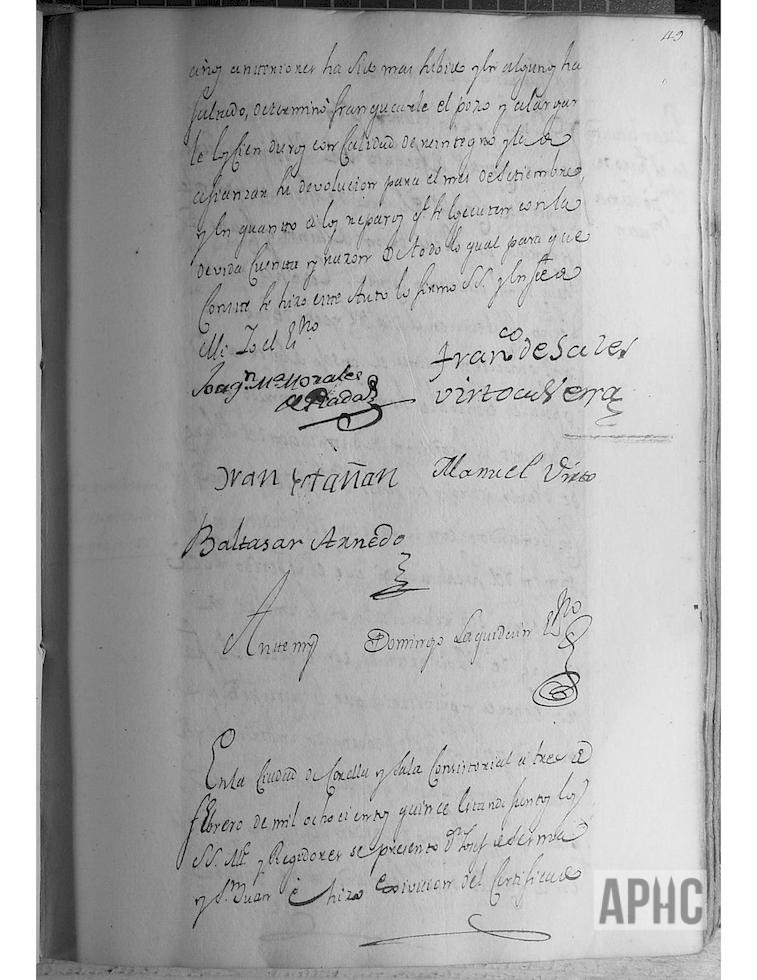 49
años anteriores ha sido mas hibie y en algunos ha
faltado, determinó franquearle el pozo y alargar
le los cien duros con Calidad de reintegro y la de
afianzar la devolucion para el mes de Setiembre,
y en quanto a los reparos qe se ejecuten con la
devida Cuenta y razon de todo lo qual para que
Conste se hizo este Auto lo firmo SS. y en fe de
Mi Yo el Esno
Joaqn Ma Morales
de Rada
Franco de Sales
virto de Vera
Juan Estañan
Manuel Virto
Baltasar Arnedo
Antemi
Domingo Laquidain Esno
En la Ciudad de Corella y Sala Consistorial a trece de
febrero de mil ochocientos quince Estando juntos los
SS. Ale y Regidores se presento Dn Josef de Sesma
y Sn Juan e hizo exivicion del Certificado
APHC